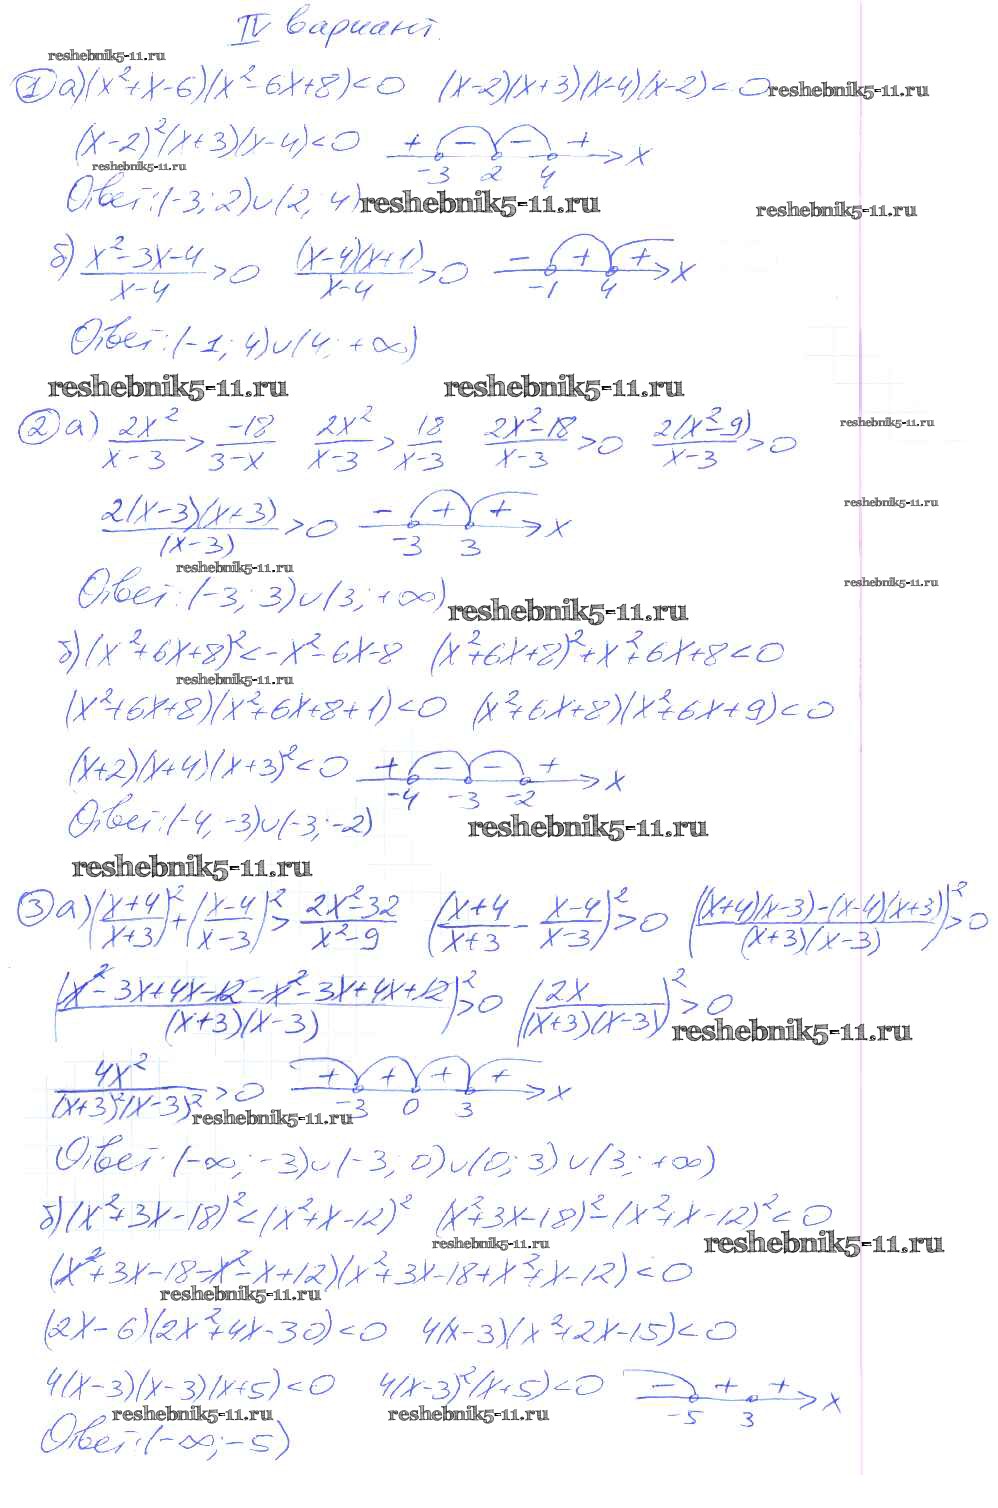 IV вариант.
reshebnik5-11.ru
① а) (x²+x-6)(x²-6x+8)<0   (x-2)(x+3)(x-4)(x-2)<0 reshebnik5-11.ru
(x-2)²(x+3)(x-4)<0   + - - + x
reshebnik5-11.ru   -3 2 4
Ответ: (-3; 2)∪(2, 4) reshebnik5-11.ru   reshebnik5-11.ru
б) (x²-3x-4)/(x-4)>0   ((x-4)(x+1))/(x-4)>0   - + + x
-1 4
Ответ: (-1; 4)∪(4; +∞)
reshebnik5-11.ru   reshebnik5-11.ru
② а) 2x²/(x-3)>-18/(3-x)   2x²/(x-3)>18/(x-3)   (2x²-18)/(x-3)>0   2(x²-9)/(x-3)>0   reshebnik5-11.ru
2(x-3)(x+3)/(x-3)>0   - + + x   reshebnik5-11.ru
-3 3
reshebnik5-11.ru   reshebnik5-11.ru
Ответ: (-3; 3)∪(3; +∞) reshebnik5-11.ru
б) (x²+6x+8)²<-x²-6x-8   (x²+6x+8)²+x²+6x+8<0
reshebnik5-11.ru
(x²+6x+8)(x²+6x+8+1)<0   (x²+6x+8)(x²+6x+9)<0
(x+2)(x+4)(x+3)²<0   + - - + x
-4 -3 -2
Ответ: (-4, -3)∪(-3; -2)   reshebnik5-11.ru
reshebnik5-11.ru
③ а) ((x+4)/(x+3))²+((x-4)/(x-3))²>(2x²-32)/(x²-9)   ((x+4)/(x+3)-(x-4)/(x-3))²>0   (((x+4)(x-3)-(x-4)(x+3))/((x+3)(x-3)))²>0
((x²-3x+4x-12-x²-3x+4x+12)/((x+3)(x-3)))²>0   (2x/((x+3)(x-3)))²>0 reshebnik5-11.ru
4x²/((x+3)²(x-3)²)>0   + + + + x
reshebnik5-11.ru   -3 0 3
Ответ: (-∞; -3)∪(-3; 0)∪(0; 3)∪(3; +∞)
б) (x²+3x-18)²<(x²+x-12)²   (x²+3x-18)²-(x²+x-12)²<0
reshebnik5-11.ru   reshebnik5-11.ru
(x²+3x-18-x²-x+12)(x²+3x-18+x²+x-12)<0
reshebnik5-11.ru
(2x-6)(2x²+4x-30)<0   4(x-3)(x²+2x-15)<0
4(x-3)(x-3)(x+5)<0   4(x-3)²(x+5)<0   - + + x
reshebnik5-11.ru   reshebnik5-11.ru   -5 3
Ответ: (-∞; -5)